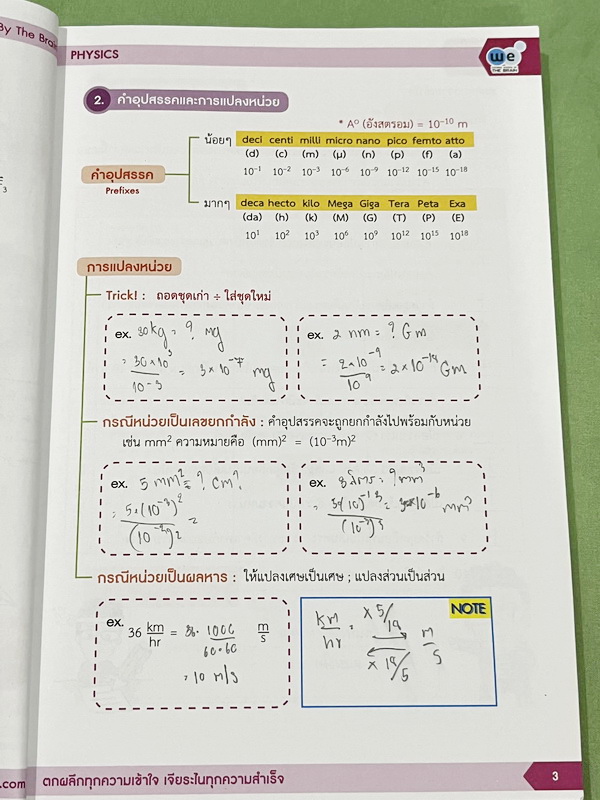 By The Brain
PHYSICS
we
THE BRAIN
2. คำอุปสรรคและการแปลงหน่วย
* Aº (อังสตรอม) = 10⁻¹⁰ m
น้อยๆ deci centi milli micro nano pico femto atto
(d) (c) (m) (μ) (n) (p) (f) (a)
10⁻¹ 10⁻² 10⁻³ 10⁻⁶ 10⁻⁹ 10⁻¹² 10⁻¹⁵ 10⁻¹⁸
คำอุปสรรค
Prefixes
มากๆ deca hecto kilo Mega Giga Tera Peta Exa
(da) (h) (k) (M) (G) (T) (P) (E)
10¹ 10² 10³ 10⁶ 10⁹ 10¹² 10¹⁵ 10¹⁸
การแปลงหน่วย
Trick! : ถอดชุดเก่า ÷ ใส่ชุดใหม่
ex. 30kg = ? mg
= 30×10³
10⁻³
= 3×10⁻⁷ mg
ex. 2 nm = ? Gm
= 2×10⁻⁹
10⁹
= 2×10⁻¹⁸ Gm
กรณีหน่วยเป็นเลขยกกำลัง : คำอุปสรรคจะถูกยกกำลังไปพร้อมกับหน่วย
เช่น mm² ความหมายคือ (mm)² = (10⁻³m)²
ex. 5 mm² = ? cm²
= 5×(10⁻³)²
(10⁻²)² =
ex. 8 ลิตร = ? mm³
mm³
กรณีหน่วยเป็นผลหาร : ให้แปลงเศษเป็นเศษ ; แปลงส่วนเป็นส่วน
ex.
36 km/hr = 36 · 1000 m
60·60 s
= 10 m/s
NOTE
km = ×5/18 m
hr ×18/5 s
.com ตกผลึกทุกความเข้าใจ เจียระไนทุกความสำเร็จ
3